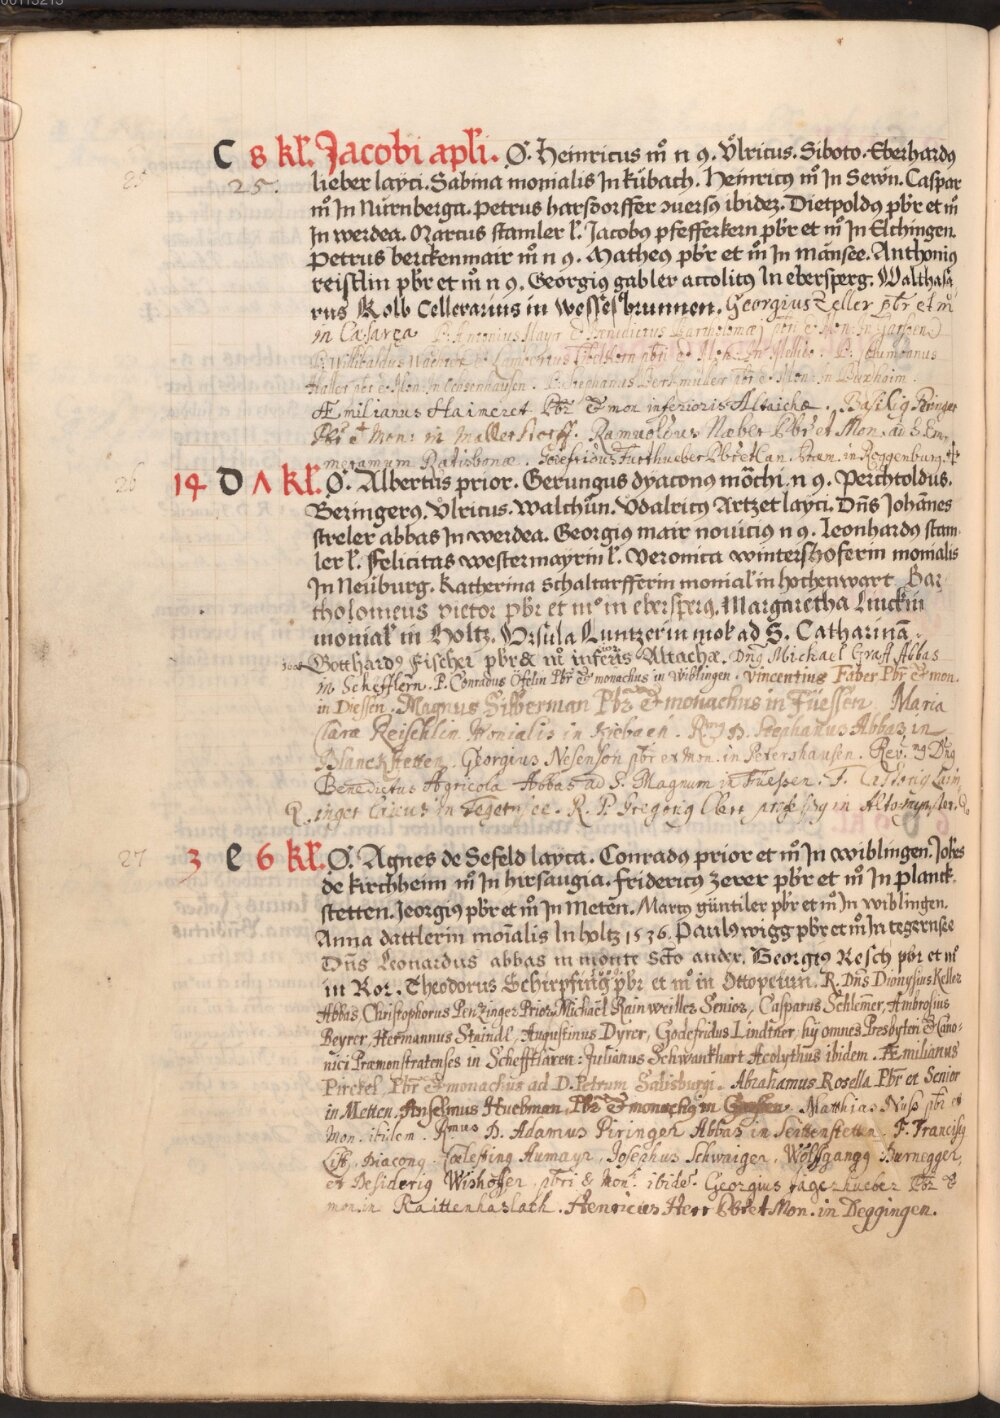 C 8 kl. Jacobi apli. O. Heinricus m n 9. Vlricus. Siboto. Eberhard9
25.
lieber layci. Sabina monialis In kübach. Heinric9 m In Sewn. Caspar
m In Nürnberga. Petrus harsdorffer ibidez. Dietpold9 pbr et m
In werdea. Marcus stamler l. Jacob9 pfefferkern pbr et m In Elchingen.
Petrus berckenmair m n 9. Mathe9 pbr et m In mänsee. Anthoni9
reistlin pbr et m n 9. Georgi9 gabler accolit9 In ebersperg. Walthasa
rus Kolb Cellerarius in wessesbrunnen. Georgius Zeller pbr et m
in Cæsarea P. Antonius Mayr & Benedictus Bartholomæj pbri & Mon. In
P. Willibaldus pbri & Mon. In P. Columbanus
Haller pbr & Mon. In Ochsenhausen. P. Stephanus Berkmüller pbr & Mon. in Buxheim.
Æmilianus Haimeret Pbr & mon inferioris Altaichæ. Basili9
Pbr et Mon: in Mallerstorff. Ramuoldus Næber Pbr et Mon. ad S. Em
meramum Ratisbonæ. Godefridus Furthueber Pbr et Can. Præm. in Roggenburg.
26 14 D Λ kl. O. Albertus prior. Gerungus dyacon9 möchi n 9. Perchtoldus.
Beringer9. Vlricus. walchun. Vdalric9 Artzet layci. Dns Johannes
streler abbas In werdea. Georgi9 mair nouici9 n 9. Leonhard9 stam
ler l. Felicitas westermayrin l. Veronica wintershoferin monialis
In Neüburg. Katherina Schaltarfferin monial in hochenwart Bar
tholomeus pictor pbr et m in ebersperg. Margaretha Linckin
monial in Holtz. Vrsula Luntzerin mo ad S. Catharinā.
Gotthard9 Fischer pbr & m inferioris Altachæ. Dns Michael Graff Abbas
in Schefflern. P. Conradus Öfelin Pbr & monachus in Wiblingen. Vincentius Faber Pbr & mon.
in Diessen. Magnus Silberman Pbr & monachus in Füessen Maria
Clara Reischlin Monialis in Kiebach. Rmg D. Stephanus Abbas in
Blanckstetten. Georgius Nesenson pbr et Mon. in Petershausen. Rev. Dn9
Benedictus Agricola Abbas ad S. Magnum in Füessen. F.
in Tegernsee. R. P. Gregori9 profess9 in Altomynster.
27 3 e 6 kl. O. Agnes de Sefeld layca. Conrad9 prior et m In wiblingen. Johes
de kirchheim m In hirsaugia. Frideric9 Zerer pbr et m In planck
stetten. Jeorgi9 pbr et m In Meten. Marc9 güntiler pbr et m In wiblingen.
Anna dattlerin monialis In holtz 1536. Paul9 wigg pbr et m In tegernsee
Dns Leonardus abbas in monte Scto andex. Georgi9 Resch pbr et m
in Ror. Theodorus Schirpfing9 pbr et m in Ottopeturn. R. Dns Dionysius Keller
Abbas, Christophorus Penzinger Prior, Michaël Rainweitler Senior, Casparus Schlemer, Ambrosius
Beyrer, Hermannus Staindl, Augustinus Dyrer, Godefridus Lindtner, hij omnes Presbyteri & Cano=
nici Præmonstratenses in Schefftlaren: Julianus Schwankhart Acolythus ibidem. Æmilianus
Pirckel, Pbr & monachus ad D. Petrum Salisburgi. Abrahamus Rosella Pbr et Senior
in Metten. Anselmus Huebman, Pbr & monach9 in Matthias Nuss pbr et
Mon. ibidem. Rmus D. Adamus Piringer Abbas in Seittenstetten. F. Francis9
Diacon9, Cœlestin9 Aumayr, Josephus Schwaiger, Wolfgang9 Burnegger,
et Desideri9 Wishoffer, pbri & Mon. ibide. Georgius Jagerhueber Pbr &
mon. in Raittenhaslach. Henricus Herr Pbr et Mon. in Deggingen.